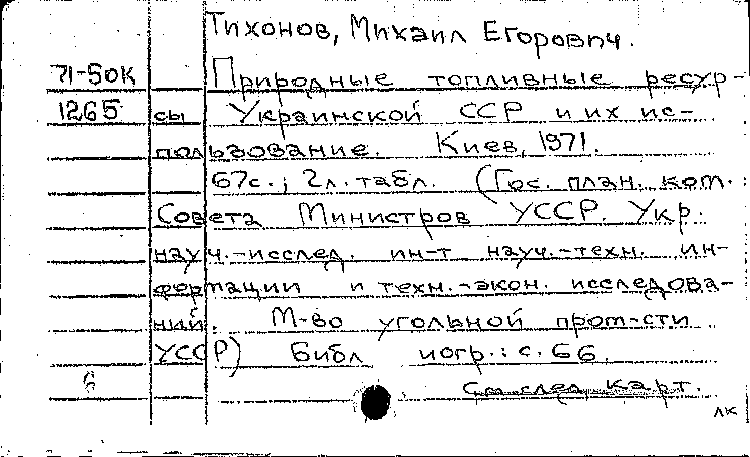 Тихонов, Михаил Егорович.
71-50К Природные топливные ресур-
1265 сы Украинской ССР и их ис-
пользование. Киев, 1971.
67с.; 2л. табл. (Гос. план. ком.
Совета Министров УССР. Укр.
науч.-исслед. ин-т науч.-техн. ин-
формации и техн.-экон. исследова-
ний. М-во угольной пром-сти
УССР) Библ иогр.: с. 66.
6 См. след. карт.
лк